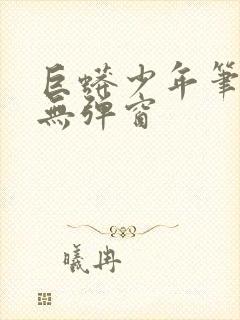 巨蟒少年筆
無彈窗
曦冉